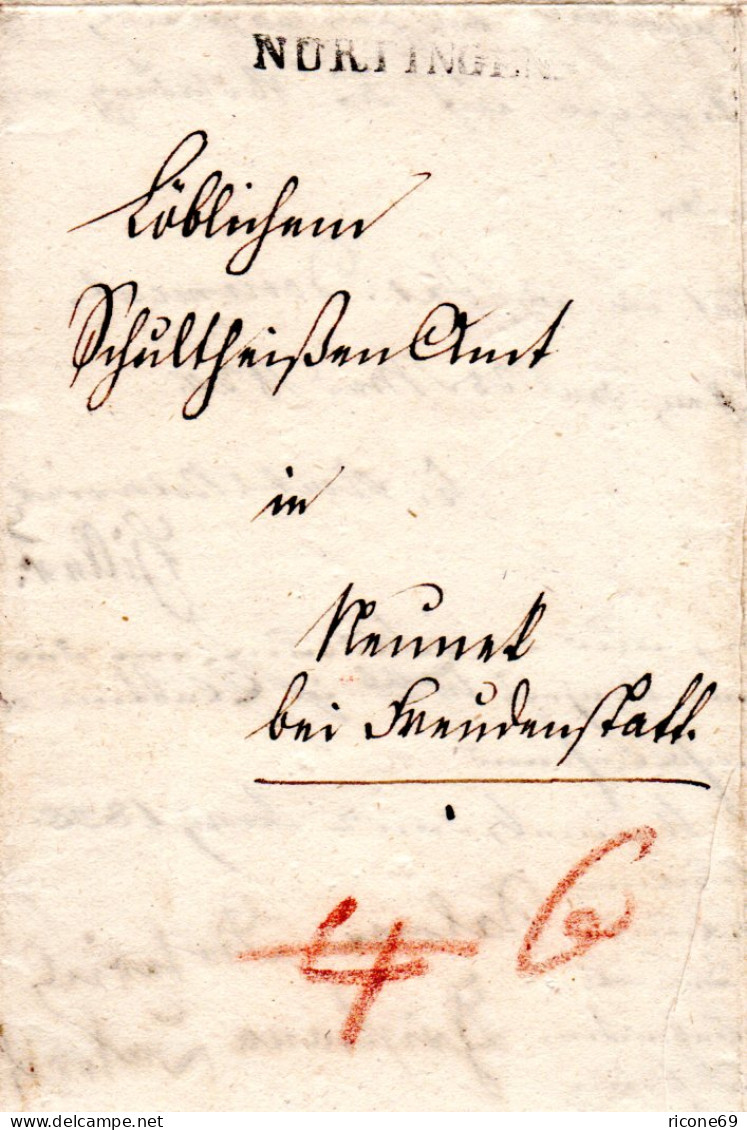 NÜRTINGEN
Löblichem
Schultheißen Amt
in
Neunek
bei Freudenstatt.
4 6
ricone69